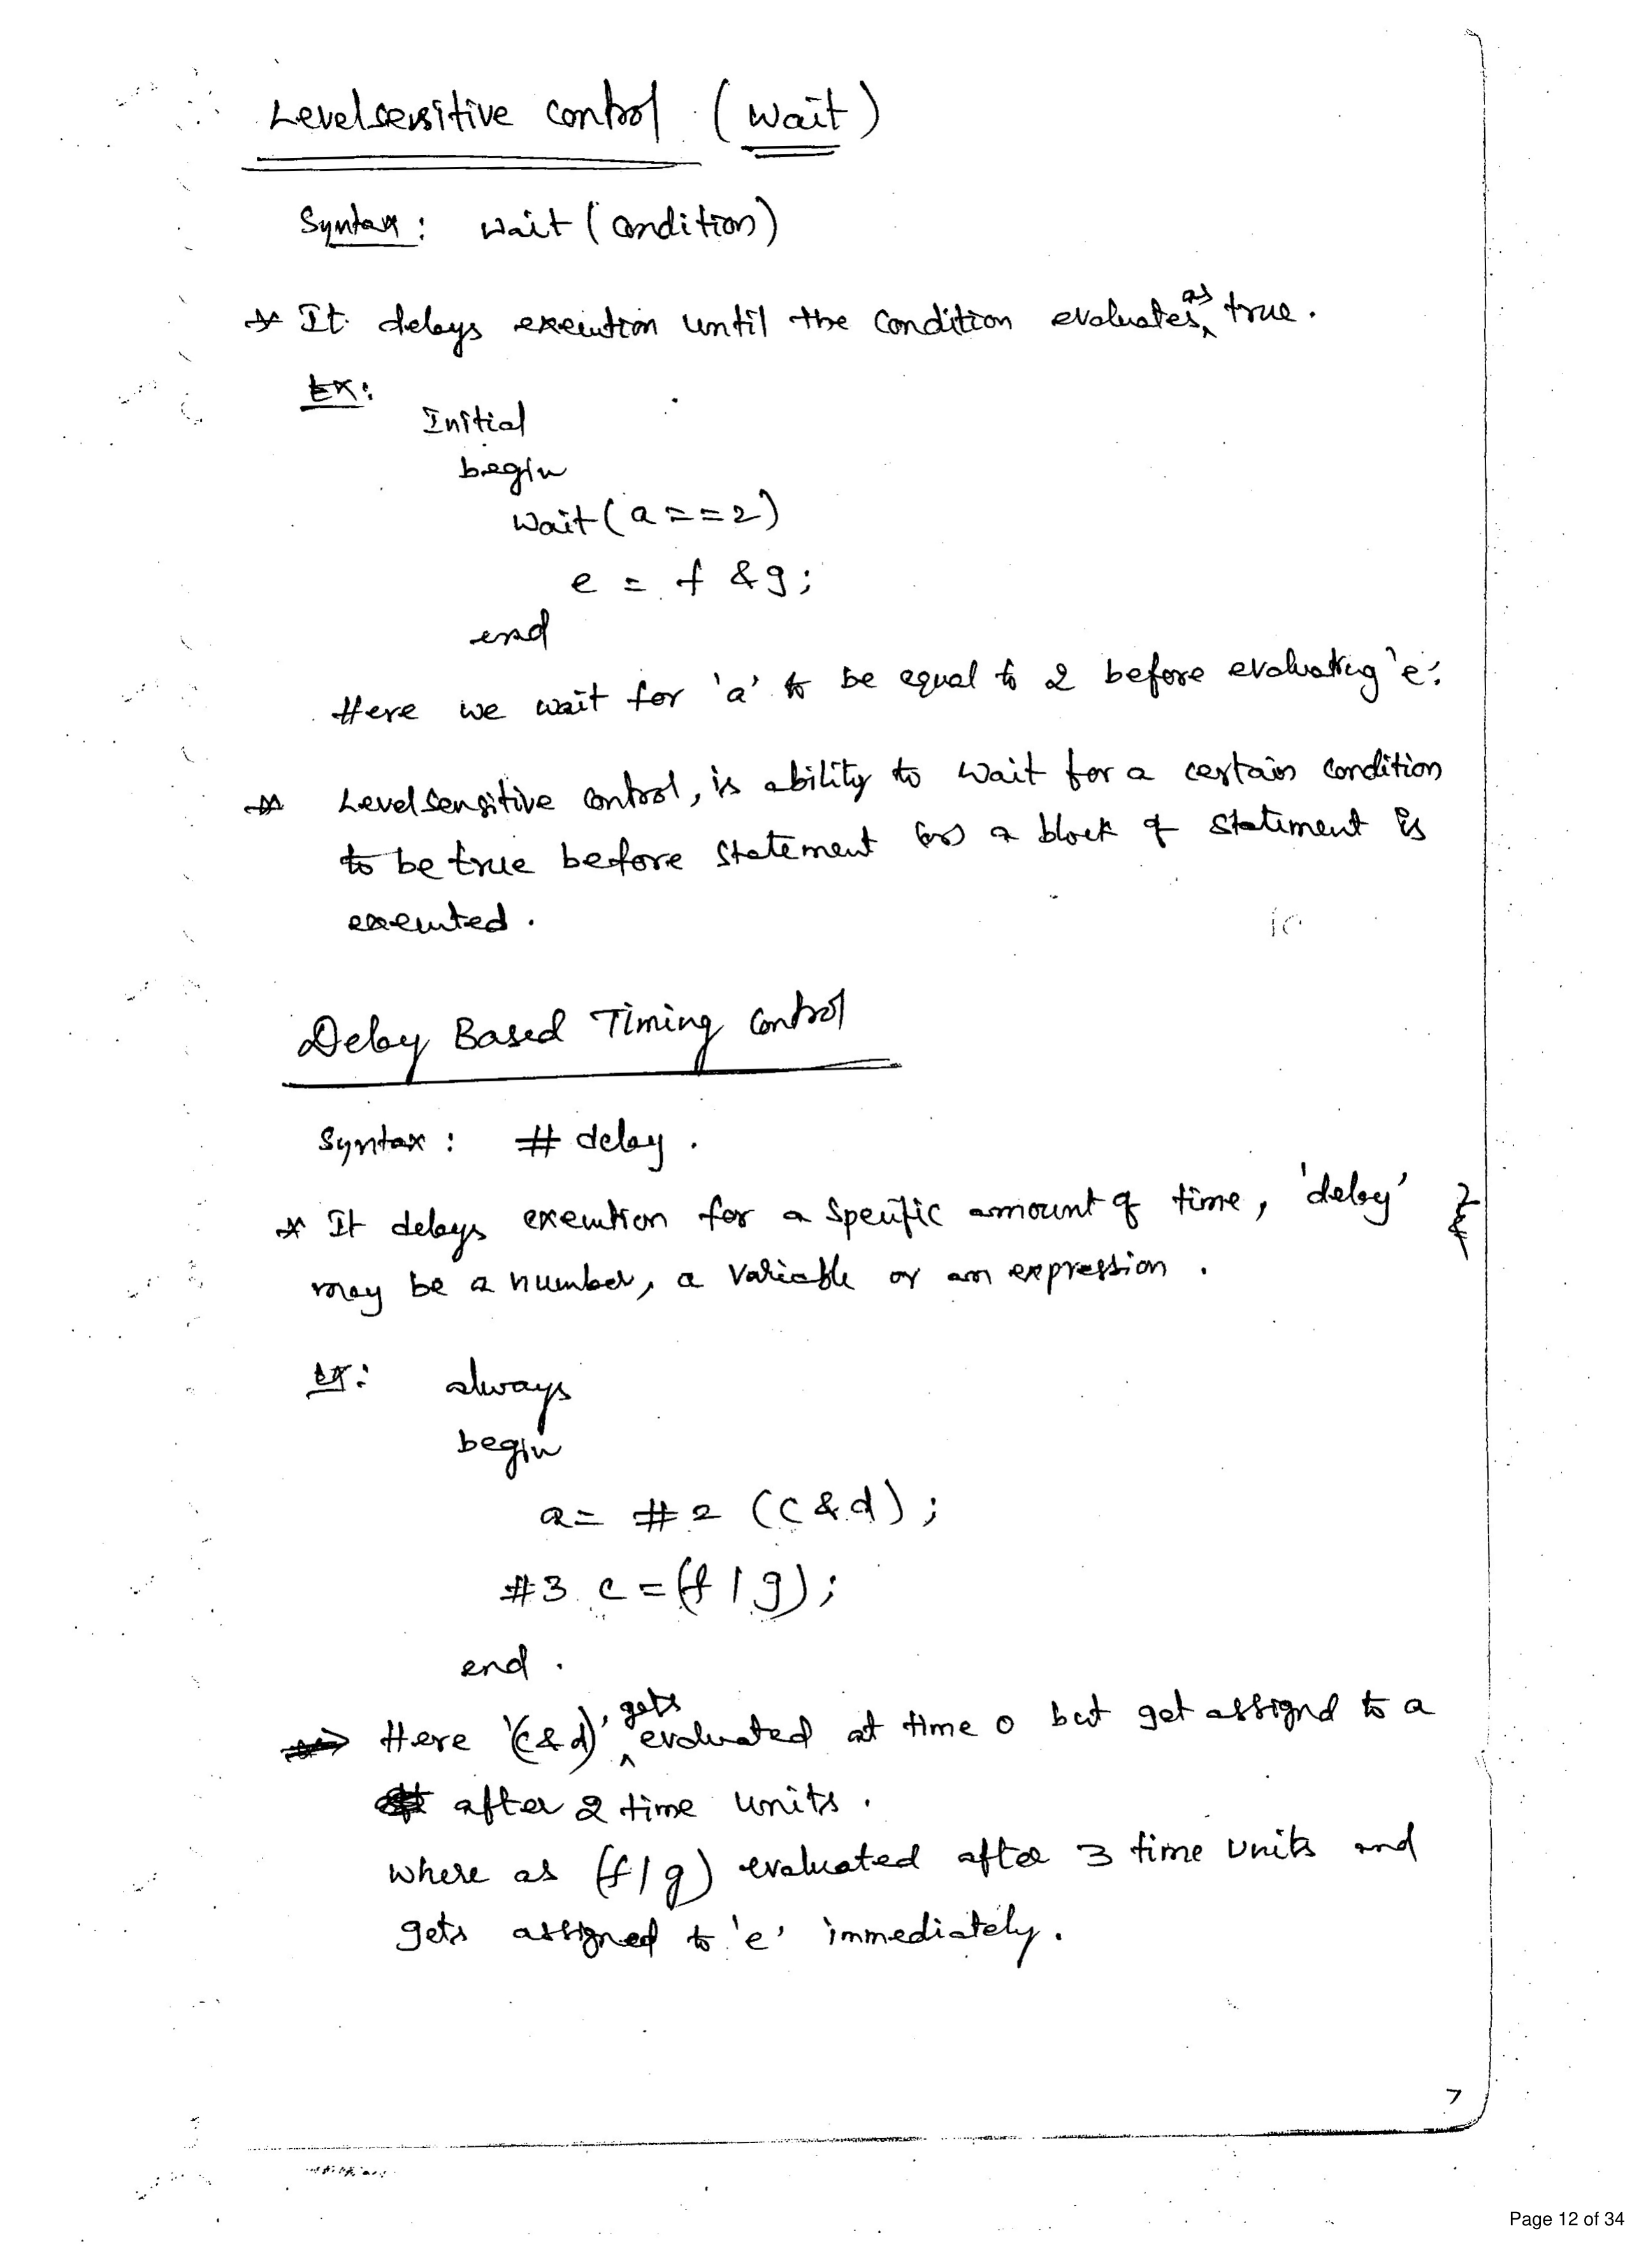 Levelsensitive control (wait)
Syntax: wait (condition)
* It delays execution until the condition evaluates as true.
Ex:
Initial
begin
wait(a==2)
e = f & g;
end
Here we wait for 'a' to be equal to 2 before evaluating 'e'.
* Levelsensitive control, is ability to wait for a certain condition
to be true before statement (or) a block of statement is
executed.
Delay Based Timing control
Syntax: # delay.
* It delays execution for a specific amount of time, 'delay'
may be a number, a variable or an expression.
Ex: always
begin
a = #2 (c & d);
#3 c = (f | g);
end.
Here '(c & d)' gets evaluated at time 0 but get assignd to a
after 2 time units.
where as (f | g) evaluated after 3 time units and
gets assigned to 'e' immediately.
7
Page 12 of 34